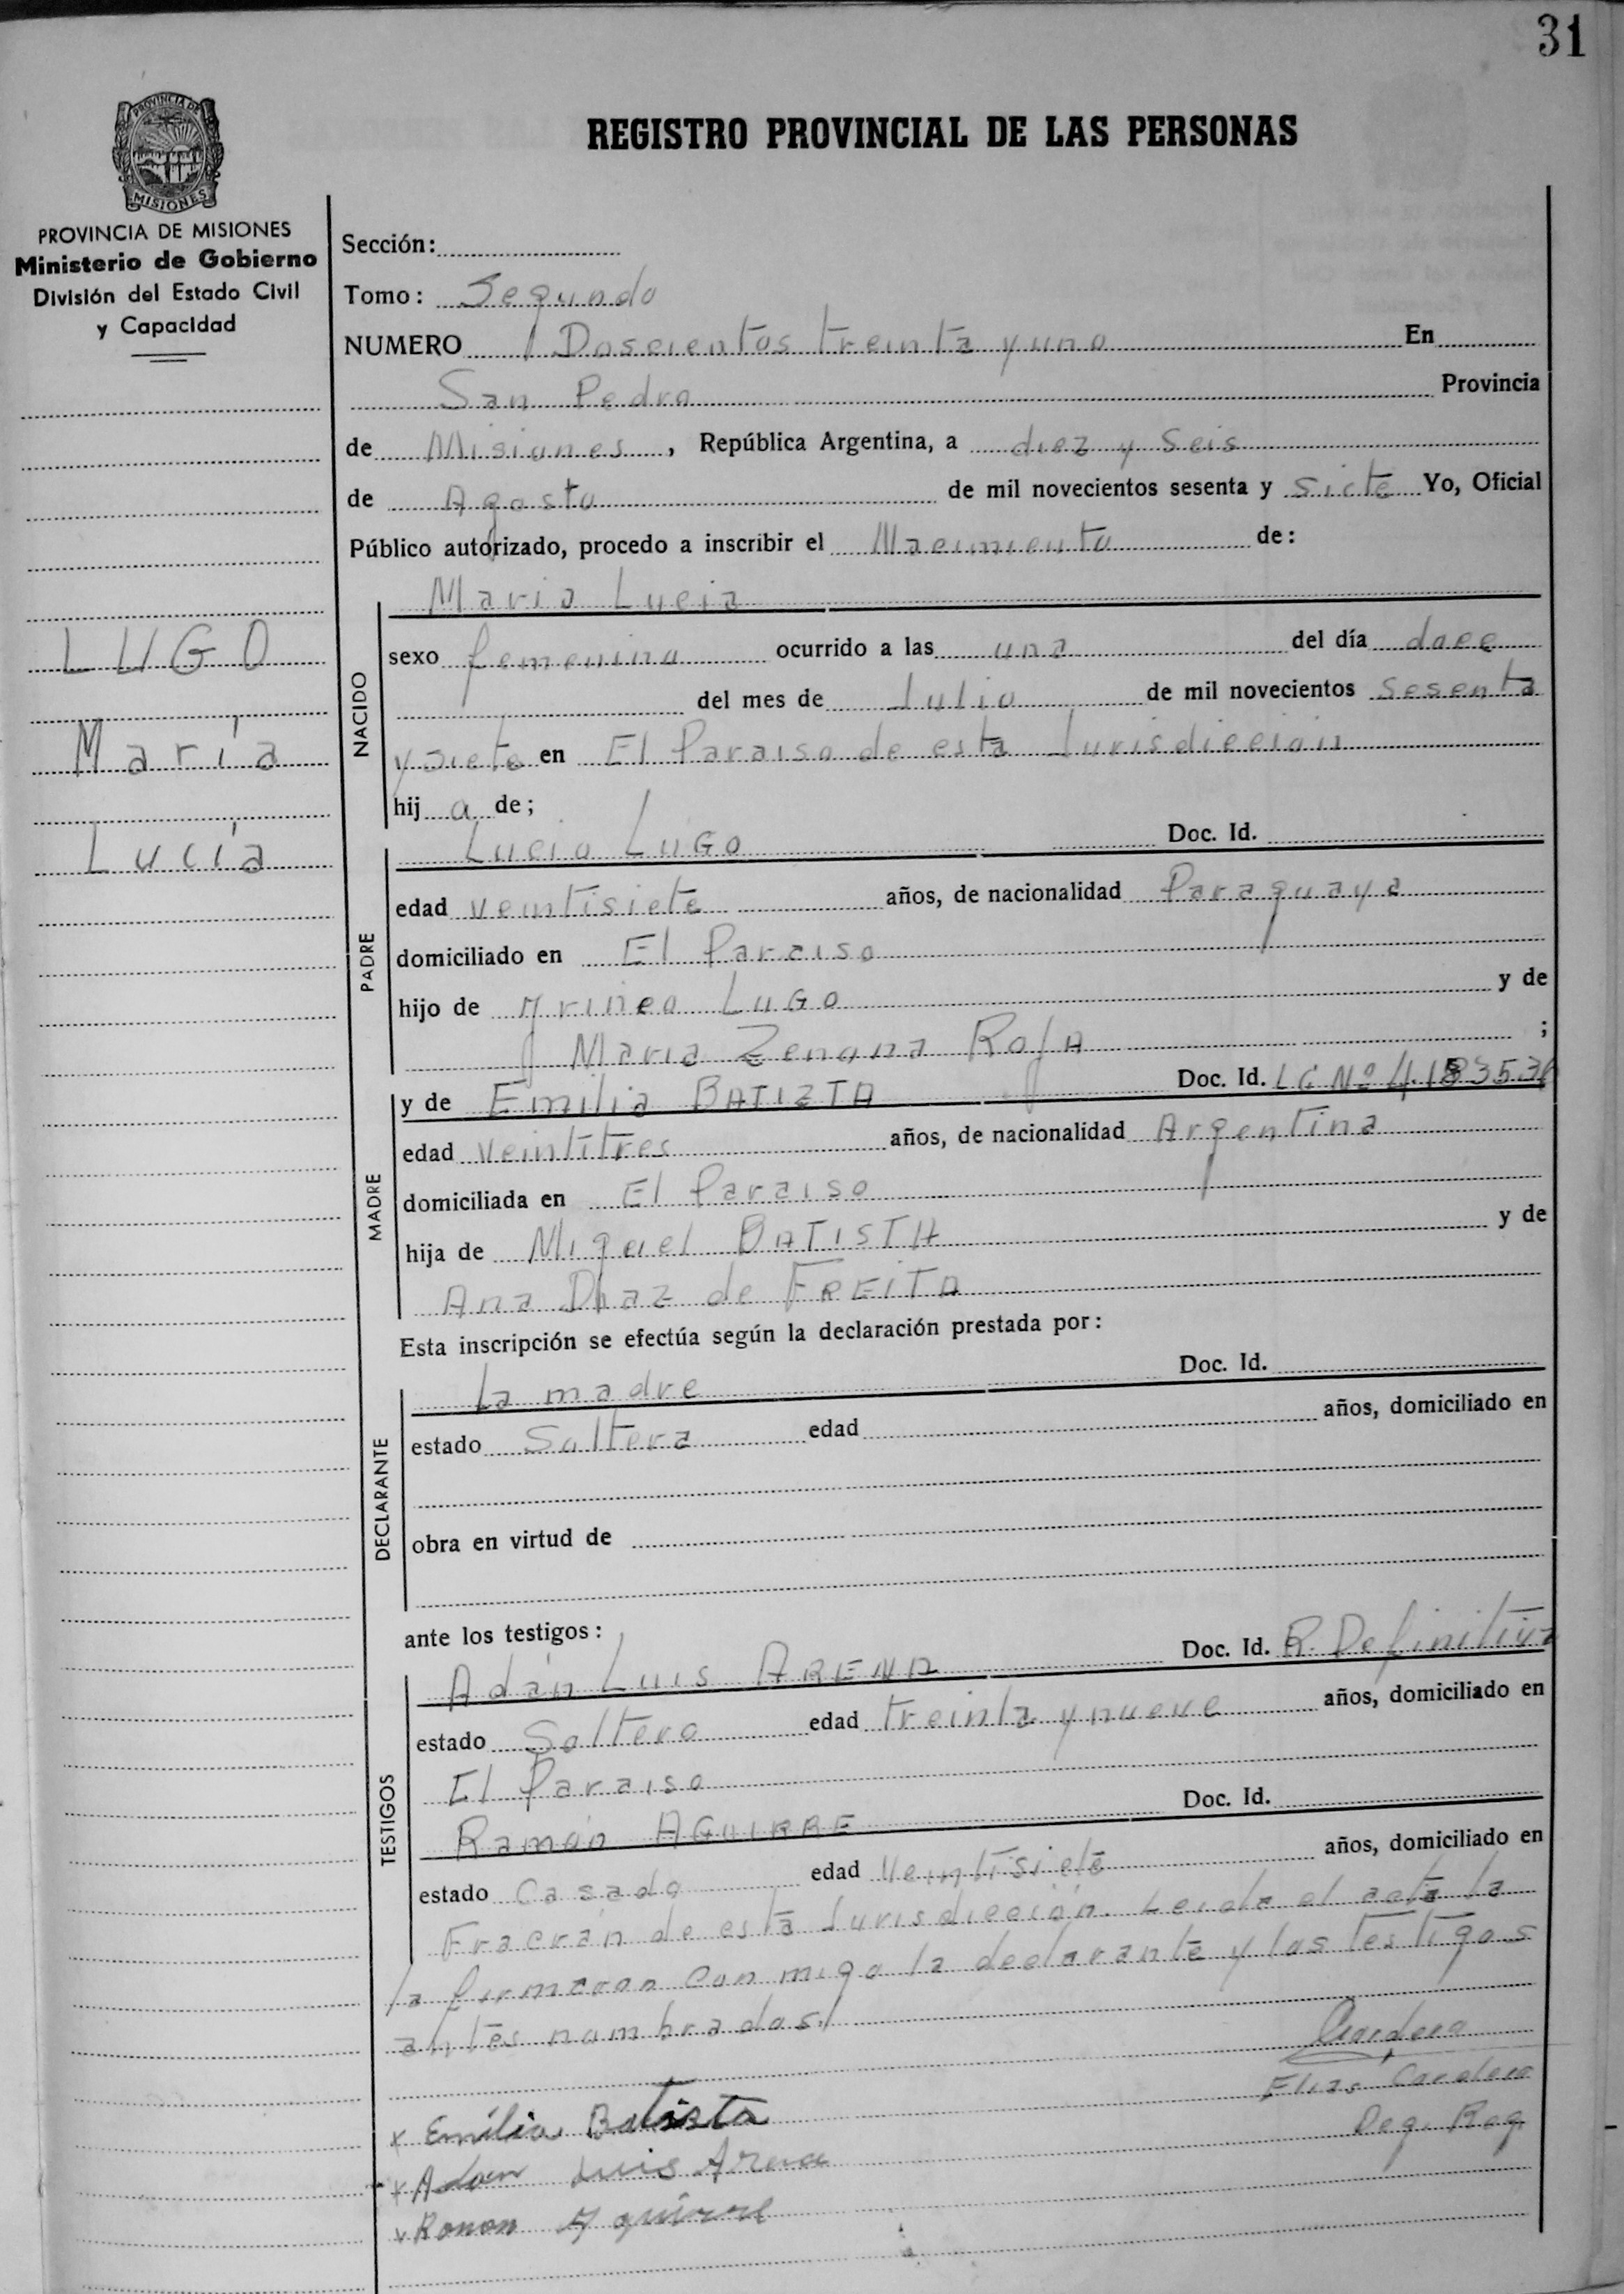 31
PROVINCIA DE
MISIONES
REGISTRO PROVINCIAL DE LAS PERSONAS
PROVINCIA DE MISIONES
Ministerio de Gobierno
División del Estado Civil
y Capacidad
LUGO
María
Lucía
Sección:
Tomo: Segundo
NUMERO Doscientos treinta y uno En
San Pedro Provincia
de Misiones, República Argentina, a diez y Seis
de Agosto de mil novecientos sesenta y siete Yo, Oficial
Público autorizado, procedo a inscribir el Nacimiento de:
Maria Lucia
NACIDO
sexo femenino ocurrido a las una del día doce
del mes de Julio de mil novecientos sesenta
y siete en El Paraiso de esta Jurisdiccion
hij a de;
Lucio LUGO Doc. Id.
PADRE
edad veintisiete años, de nacionalidad Paraguaya
domiciliado en El Paraiso
hijo de Yrineo LUGO y de
Maria Zenona Roja ;
y de Emilia BATIZTA Doc. Id. LC Nº
MADRE
edad veintitres años, de nacionalidad Argentina
domiciliada en El Paraiso
hija de Miguel BATISTA y de
Ana Diaz de FREITA
Esta inscripción se efectúa según la declaración prestada por:
La madre Doc. Id.
DECLARANTE
estado Soltera edad años, domiciliado en
obra en virtud de
ante los testigos:
Adán Luis ARENA Doc. Id. R. Definitiva
TESTIGOS
estado Soltero edad treinta y nueve años, domiciliado en
El Paraiso
Ramón AGUIRRE Doc. Id.
estado Casado edad Veintisiete años, domiciliado en
Fracrán de esta Jurisdicción. Leida el acta la
la firmaron con migo la declarante y los testigos
antes nombrados.
Cardozo
Elias Cardozo
Deg. Reg.
x Emilia Batista
x Adan Luis Arena
x Ramon Aguirre